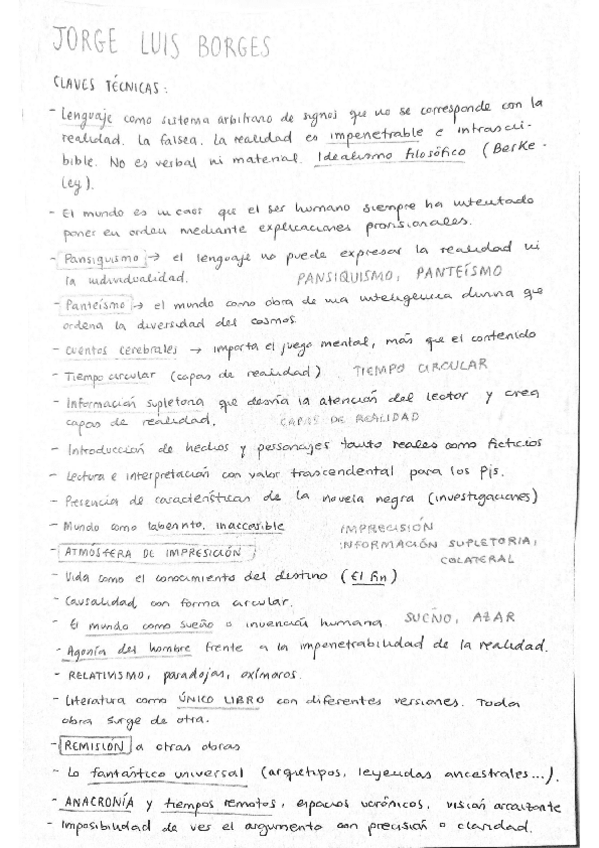 JORGE LUIS BORGES
CLAVES TÉCNICAS:
- Lenguaje como sistema arbitrario de signos que no se corresponde con la
realidad. La falsea. La realidad es impenetrable e intrascri-
bible. No es verbal ni material. Idealismo filosófico (Berke-
ley).
- El mundo es un caos que el ser humano siempre ha intentado
poner en orden mediante explicaciones provisionales.
- Pansiquismo → el lenguaje no puede expresar la realidad ni
la individualidad. PANSIQUISMO, PANTEÍSMO
- Panteísmo → el mundo como obra de una inteligencia divina que
ordena la diversidad del cosmos.
- Cuentos cerebrales → importa el juego mental, más que el contenido
- Tiempo circular (capas de realidad) TIEMPO CIRCULAR
- Información supletoria que desvía la atención del lector y crea
capas de realidad. CAPAS DE REALIDAD
- Introducción de hechos y personajes tanto reales como ficticios
- Lectura e interpretación con valor trascendental para los Pjs.
- Presencia de características de la novela negra (investigaciones)
- Mundo como laberinto, inaccesible IMPRECISIÓN
- ATMÓSFERA DE IMPRESICIÓN INFORMACIÓN SUPLETORIA,
COLATERAL
- Vida como el conocimiento del destino (El fin)
- Causalidad con forma circular.
- El mundo como sueño o invención humana. SUEÑO, AZAR
- Agonía del hombre frente a la impenetrabilidad de la realidad.
- RELATIVISMO, paradojas, oxímoros.
- Literatura como ÚNICO LIBRO con diferentes versiones. Toda
obra surge de otra.
- REMISIÓN a otras obras
- Lo fantástico universal (arquetipos, leyendas ancestrales...).
- ANACRONÍA y tiempos remotos, espacios ucrónicos, visión arcaizante
- Imposibilidad de ver el argumento con precisión o claridad.